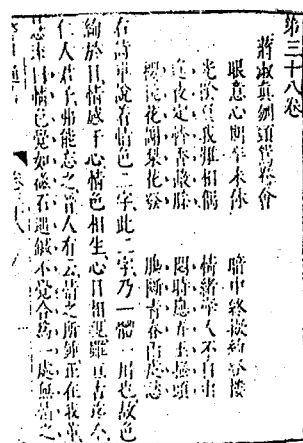 第三十八卷
蔣淑真刎頸鴛鴦會
眼意心期卒未休 暗中終擬約登樓
光陰負我難相偶 情緒牽人不自由
夜定憐香蔽膝 悶時應弄玉搔頭
櫻桃花謝梨花發 腸斷青春兩處愁
右詩單說着情色二字此二字乃一體一用也故色
絢於目情感于心情色相生心目相視雖亘古迄今
仁人君子弗能忘之晉人有云情之所鍾正在我輩
慧遠曰情色覺如磁石遇鍼不覺合為一處無情之